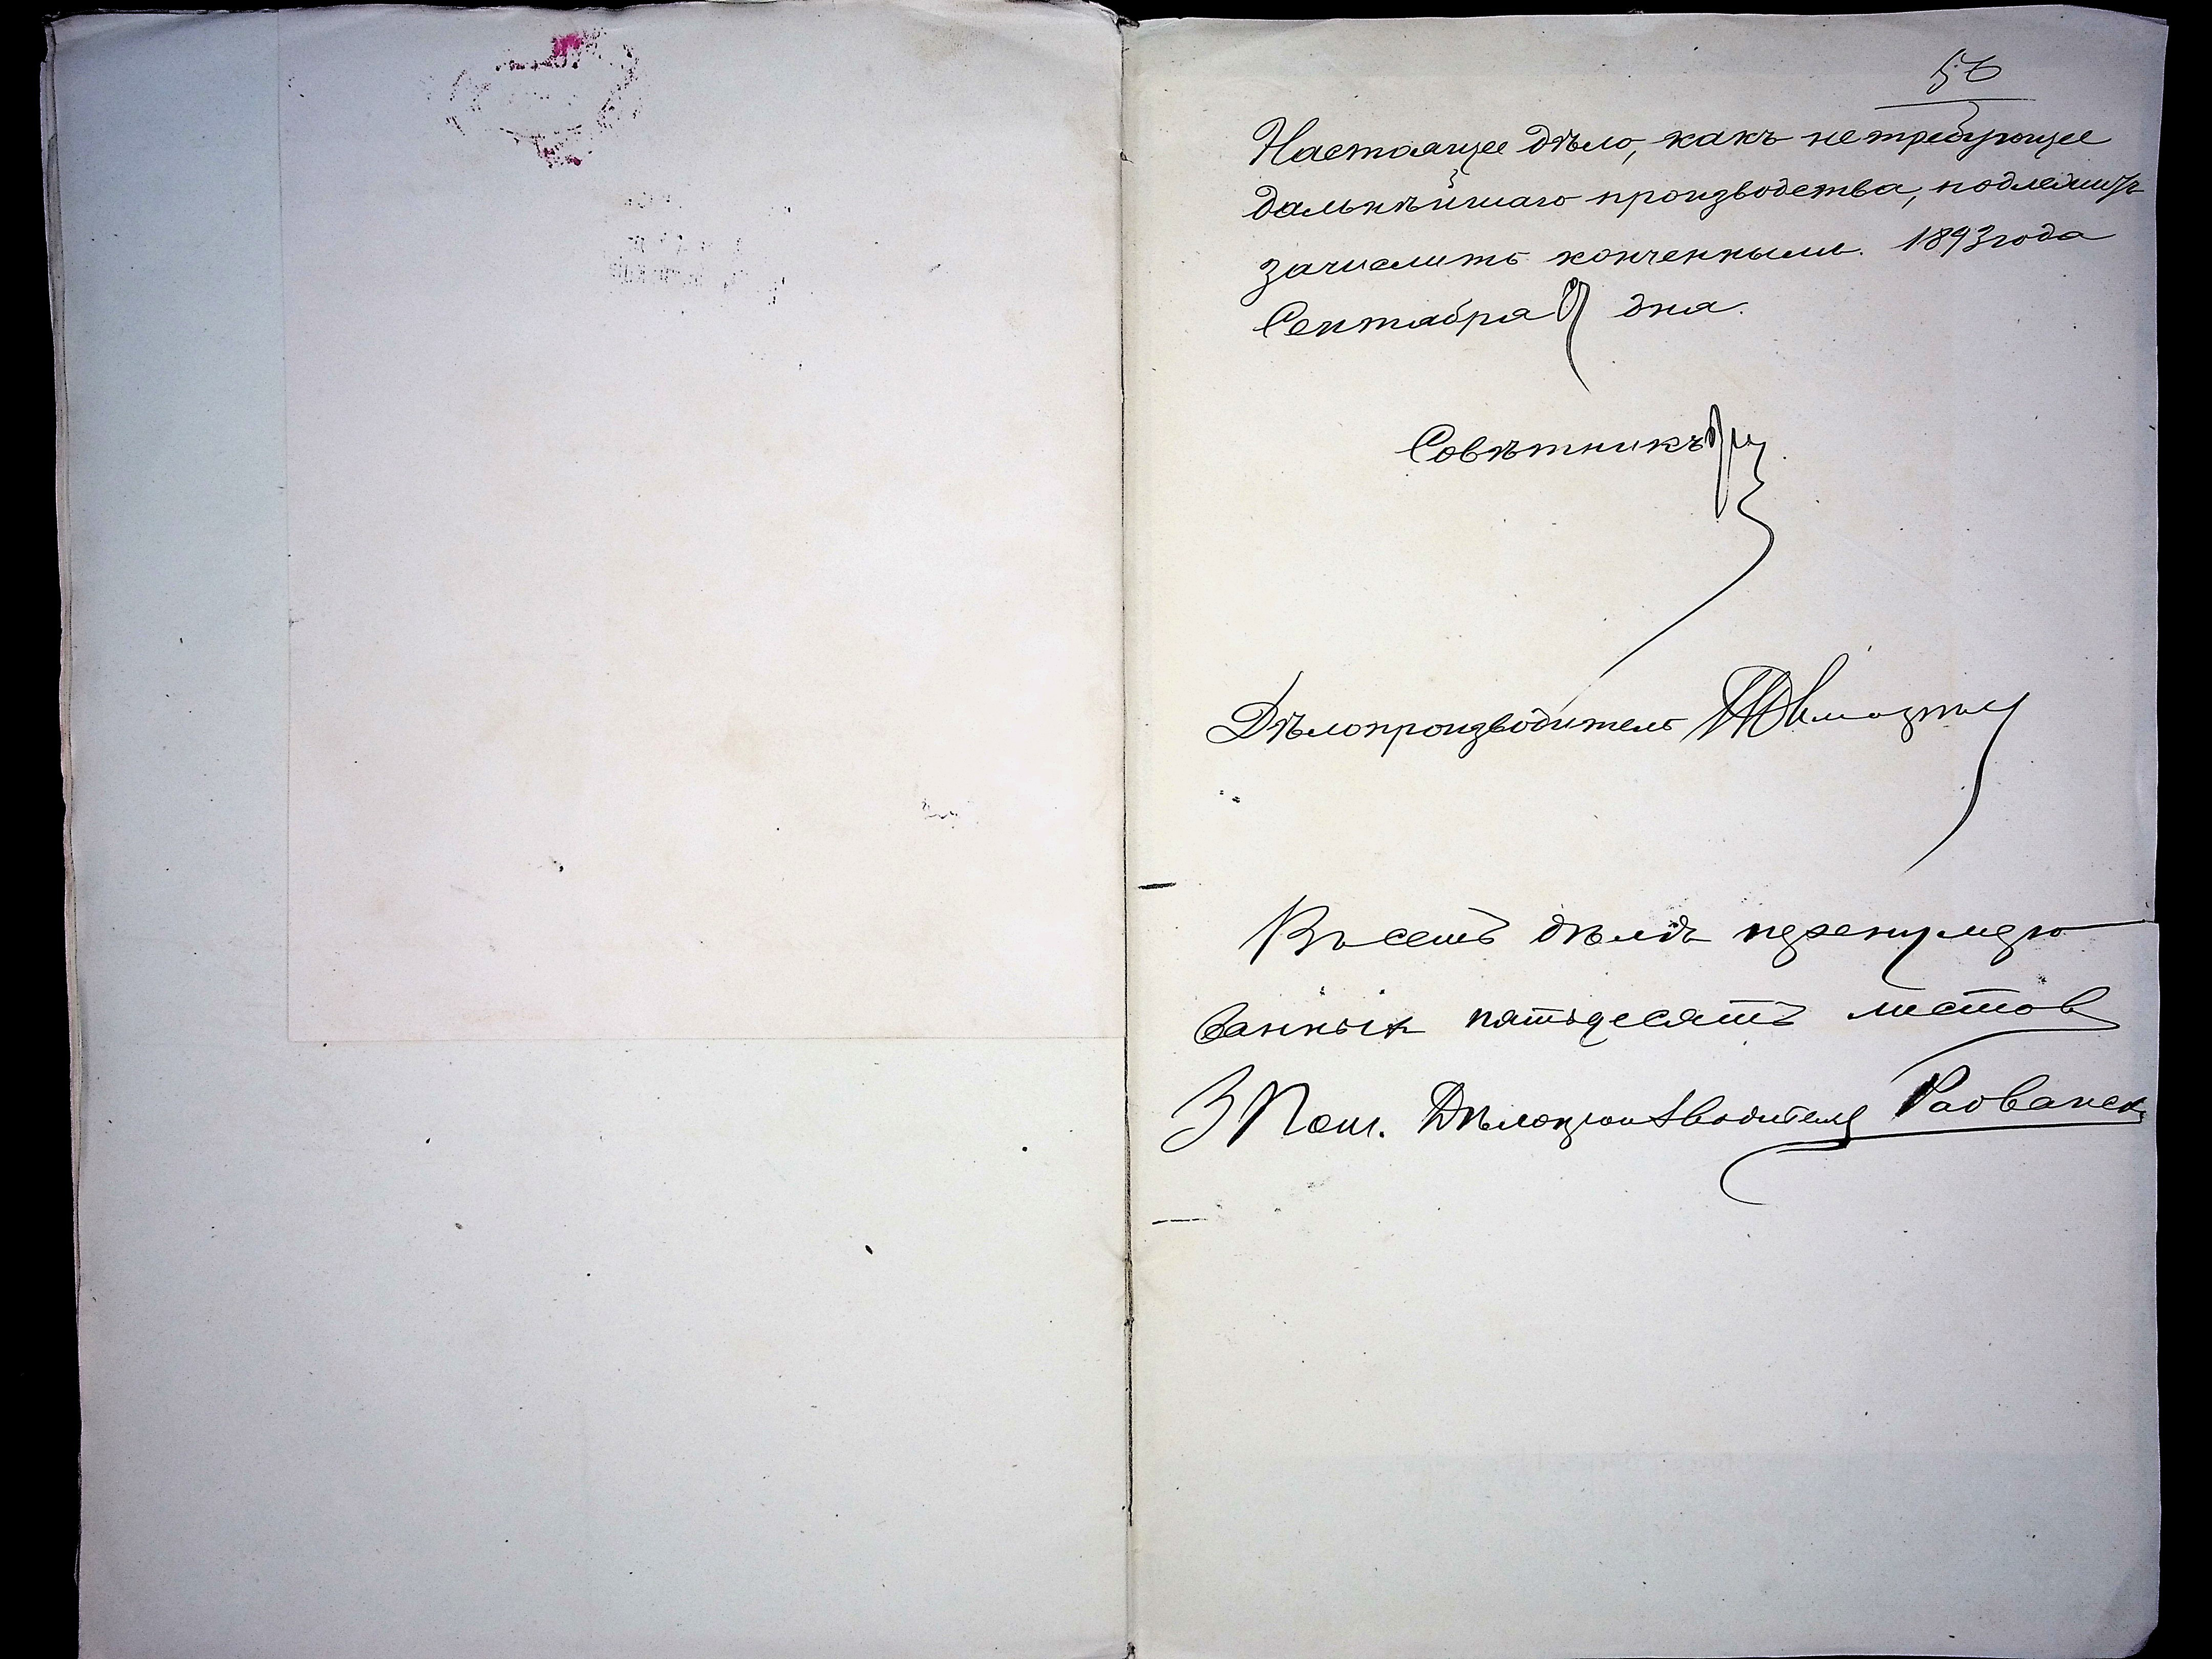 50
Настоящее дѣло, какъ не требующее
дальнѣйшаго производства, подлежитъ
зачислить конченнымъ. 1893 года
Сентября 9 дня.
Совѣтникъ
Дѣлопроизводитель
Въ семъ дѣлѣ перенумеро
ванныхъ пятьдесятъ листов
З Пом. Дѣлопроизводителя